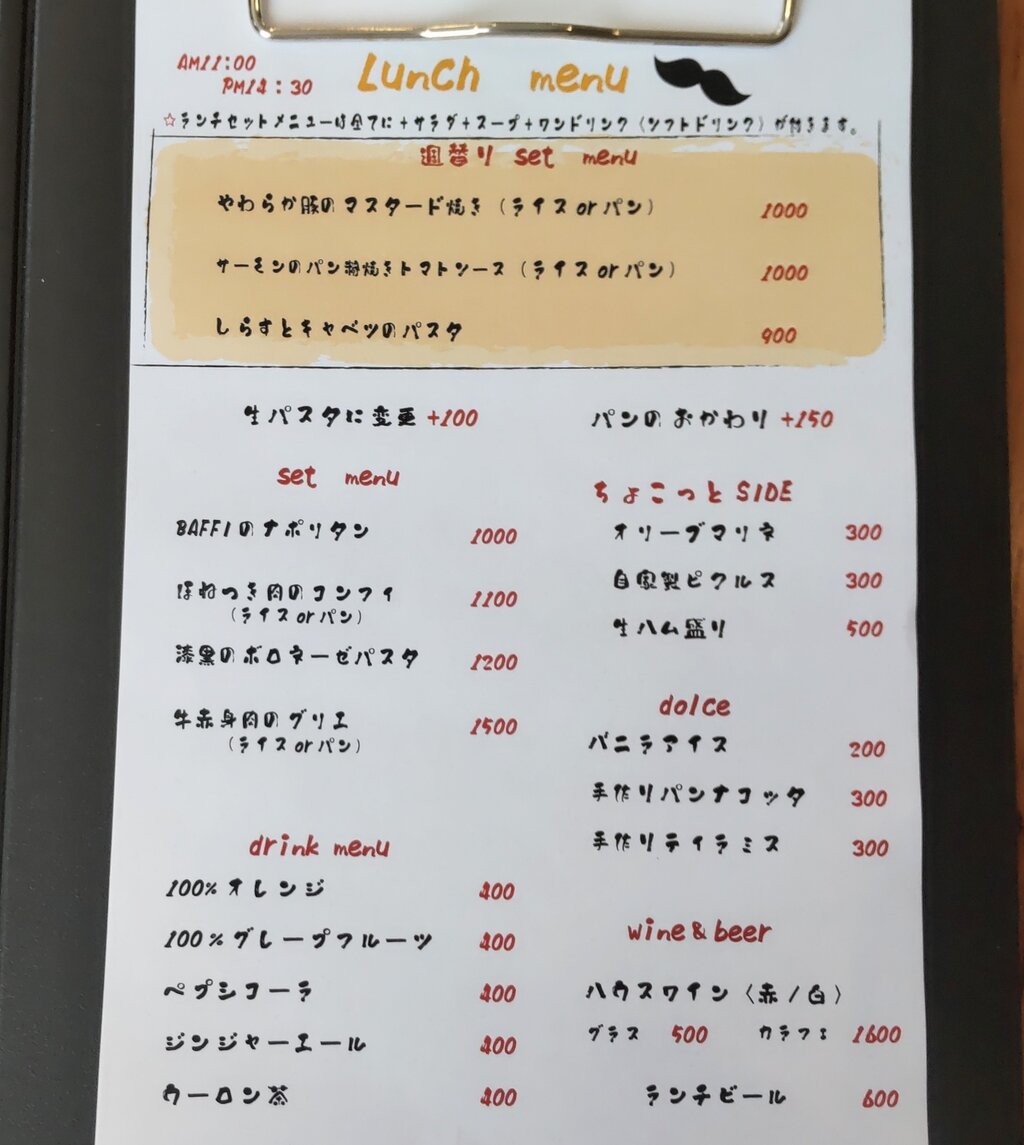 AM11:00
PM14:30
Lunch menu
☆ランチセットメニューは全てに+サラダ+スープ+ワンドリンク(ソフトドリンク)が付きます。
週替り set menu
やわらか豚のマスタード焼き(ライスorパン) 1000
サーモンのパン粉焼きトマトソース(ライスorパン) 1000
しらすとキャベツのパスタ 900
生パスタに変更+100
パンのおかわり+150
set menu
BAFFIのナポリタン 1000
ほねつき肉のコンフィ 1100
(ライスorパン)
漆黒のボロネーゼパスタ 1200
牛赤身肉のグリエ 1500
(ライスorパン)
ちょこっとSIDE
オリーブマリネ 300
自家製ピクルス 300
生ハム盛り 500
dolce
バニラアイス 200
手作りパンナコッタ 300
手作りティラミス 300
drink menu
100%オレンジ 400
100%グレープフルーツ 400
ペプシコーラ 400
ジンジャーエール 400
ウーロン茶 400
wine&beer
ハウスワイン〈赤/白〉
グラス 500 カラフェ 1600
ランチビール 600